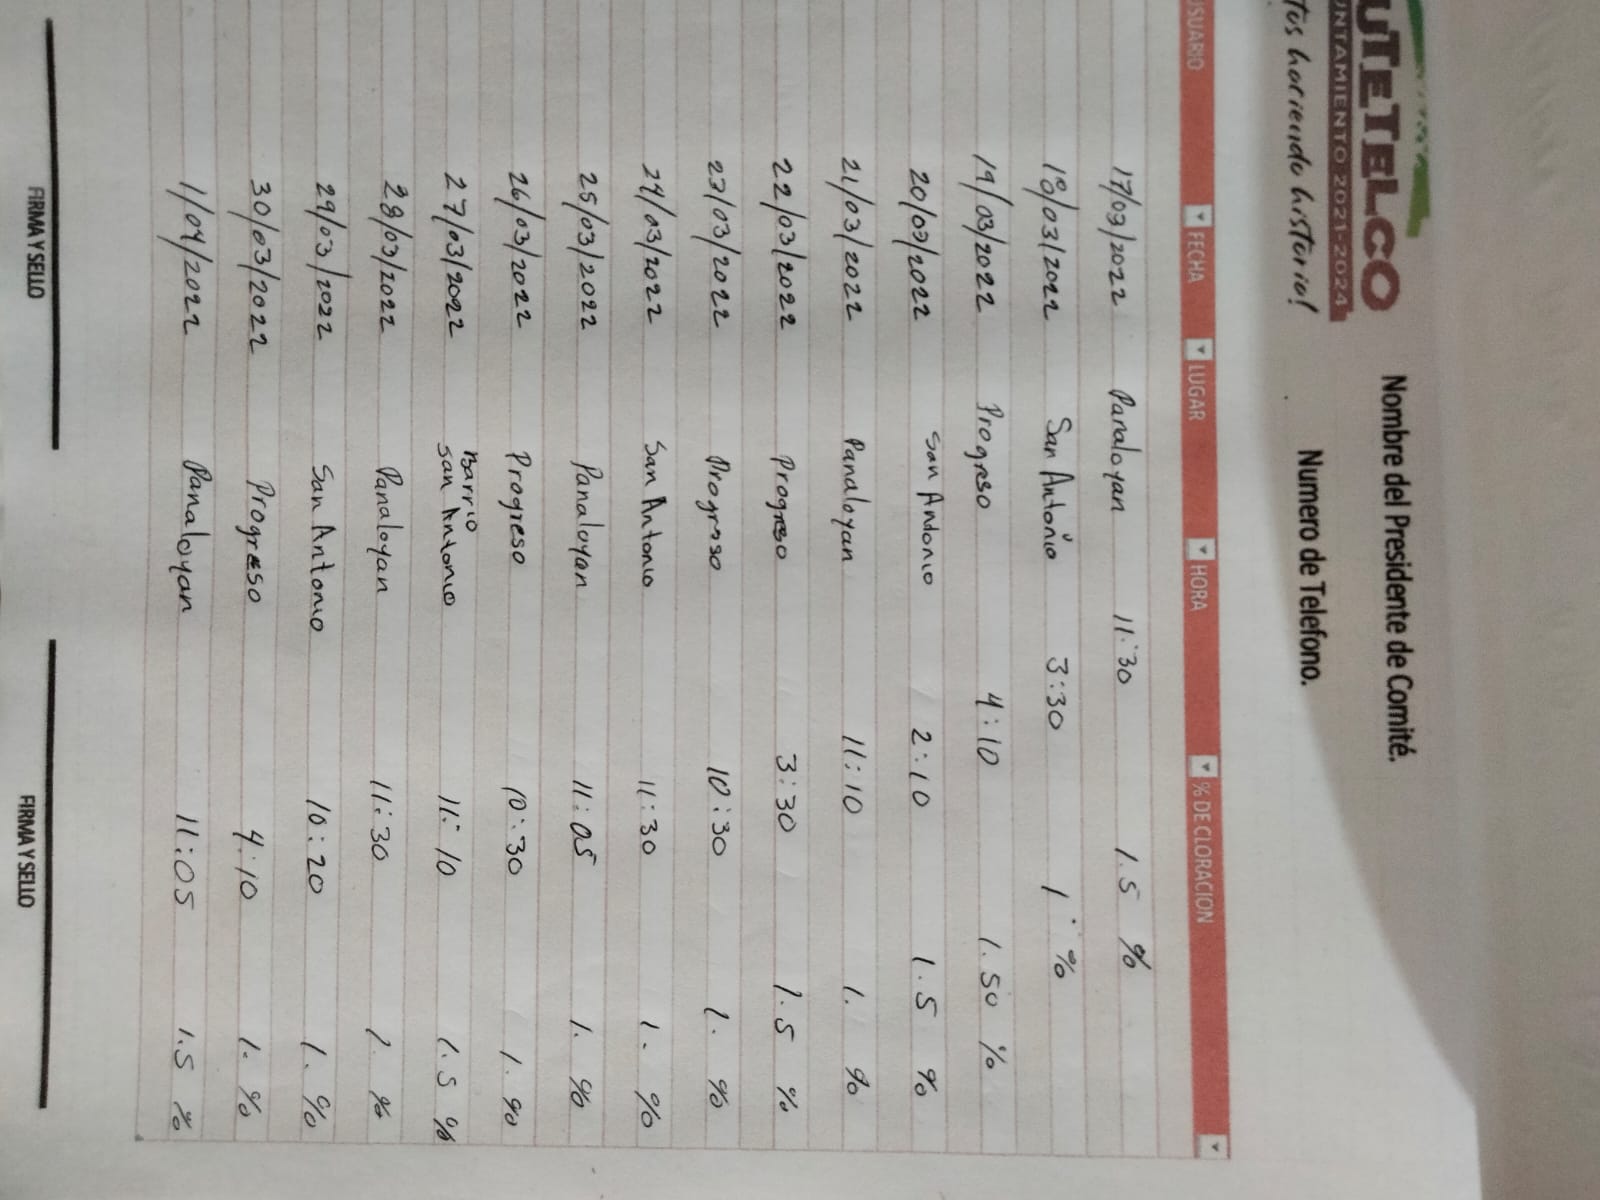 UTETELCO
UNTAMIENTO 2021-2024
tos haciendo historia!
Nombre del Presidente de Comité.
Numero de Telefono.
USUARIO FECHA LUGAR HORA % DE CLORACION
17/03/2022 Panaloyan 11:30 1.5 %
18/03/2022 San Antonio 3:30 1. %
19/03/2022 Progreso 4:10 1.50 %
20/03/2022 San Antonio 2:10 1.5 %
21/03/2022 Panaloyan 11:10 1. %
22/03/2022 Progreso 3:30 1.5 %
23/03/2022 Progreso 10:30 1. %
24/03/2022 San Antonio 11:30 1. %
25/03/2022 Panaloyan 11:05 1. %
26/03/2022 Progreso 10:30 1. %
27/03/2022 Barrio San Antonio 11:10 1.5 %
28/03/2022 Panaloyan 11:30 1. %
29/03/2022 San Antonio 10:20 1. %
30/03/2022 Progreso 4:10 1. %
1/04/2022 Panaloyan 11:05 1.5 %
FIRMA Y SELLO FIRMA Y SELLO